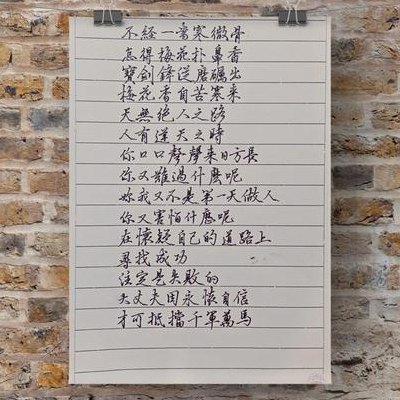 不經一番寒徹骨
怎得梅花扑鼻香
寶劍鋒從磨礪出
梅花香自苦寒来
天無絕人之路
人有逆天之時
你口口聲聲来日方長
你又難過什麼呢
妳我又不是第一天做人
你又害怕什麼呢
在懷疑自己的道路上
尋找成功
注定是失敗的
大丈夫因永懷自信
才可抵擋千軍萬馬